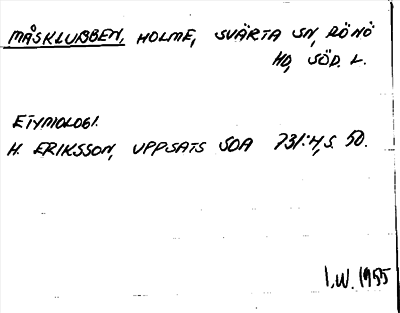 MÅSKLUBBEN, HOLME, SVÄRTA SN, RÖNÖ
HD, SÖD. L.
ETYMOLOGI.
H. ERIKSSON, UPPSATS SOA 731:H, S. 50.
I.W. 1955